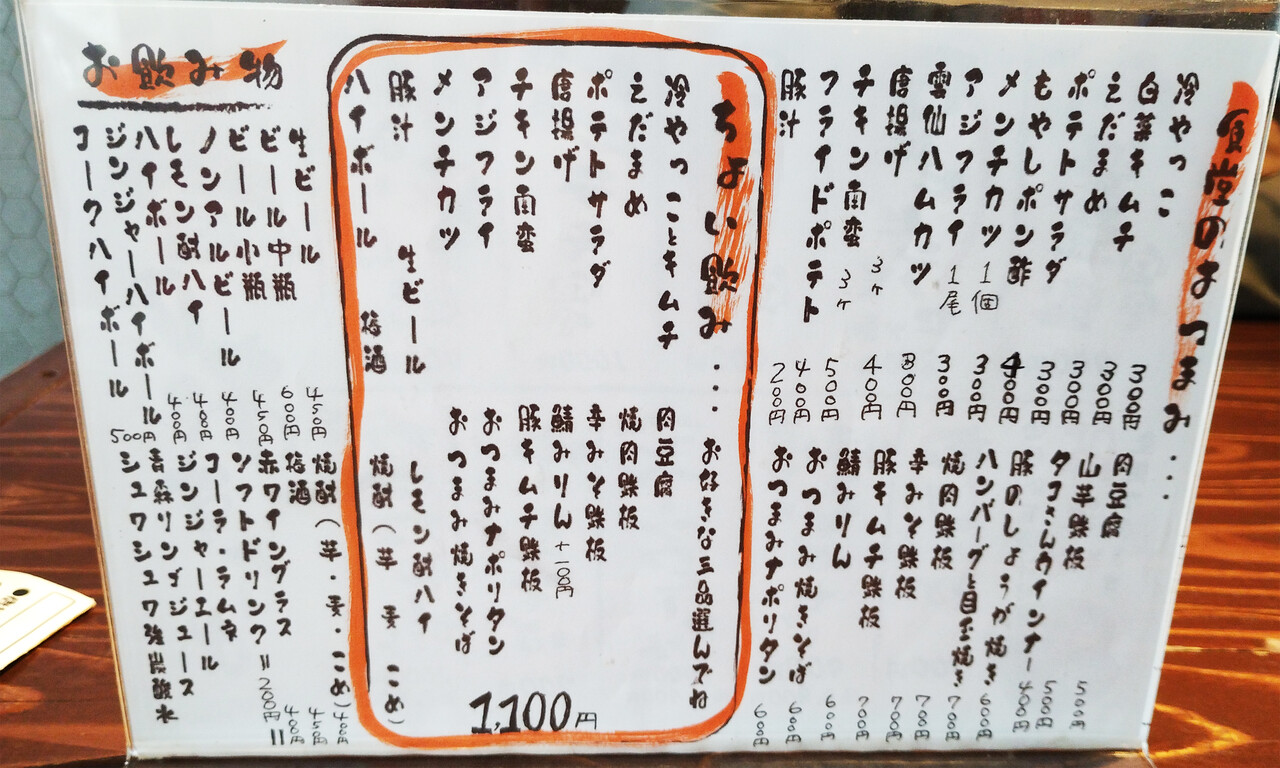 食堂のおつまみ・・・
冷やっこ 300円
白菜キムチ 300円
えだまめ 300円
ポテトサラダ 300円
もやしポン酢 400円
メンチカツ 1個 300円
アジフライ 1尾 300円
雲仙ハムカツ 800円
唐揚げ 3ヶ 400円
チキン南蛮 3ヶ 500円
フライドポテト 400円
豚汁 200円
肉豆腐 500円
山芋鉄板 500円
タコさんウインナー 400円
豚のしょうが焼き 600円
ハンバーグと目玉焼き 700円
焼肉鉄板 700円
辛みそ鉄板 700円
豚キムチ鉄板 700円
鯖みりん 600円
おつまみ焼きそば 600円
おつまみナポリタン 600円
ちょい飲み・・・お好きな三品選んでね
冷やっことキムチ
えだまめ
ポテトサラダ
唐揚げ
チキン南蛮
アジフライ
メンチカツ
豚汁
肉豆腐
焼肉鉄板
辛みそ鉄板
鯖みりん +100円
豚キムチ鉄板
おつまみナポリタン
おつまみ焼きそば
生ビール レモン酎ハイ
ハイボール 梅酒 焼酎(芋 麦 こめ)
1,100円
お飲み物
生ビール 450円
ビール中瓶 600円
ビール小瓶 450円
ノンアルビール 400円
レモン酎ハイ 400円
ハイボール 400円
ジンジャーハイボール
コークハイボール 500円
焼酎(芋・麦・こめ) 400円
梅酒 450円
赤ワイングラス 400円
ソフトドリンク =200円=
コーラ・ラムネ
ジンジャーエール
青森リンゴジュース
シュワシュワ強炭酸水